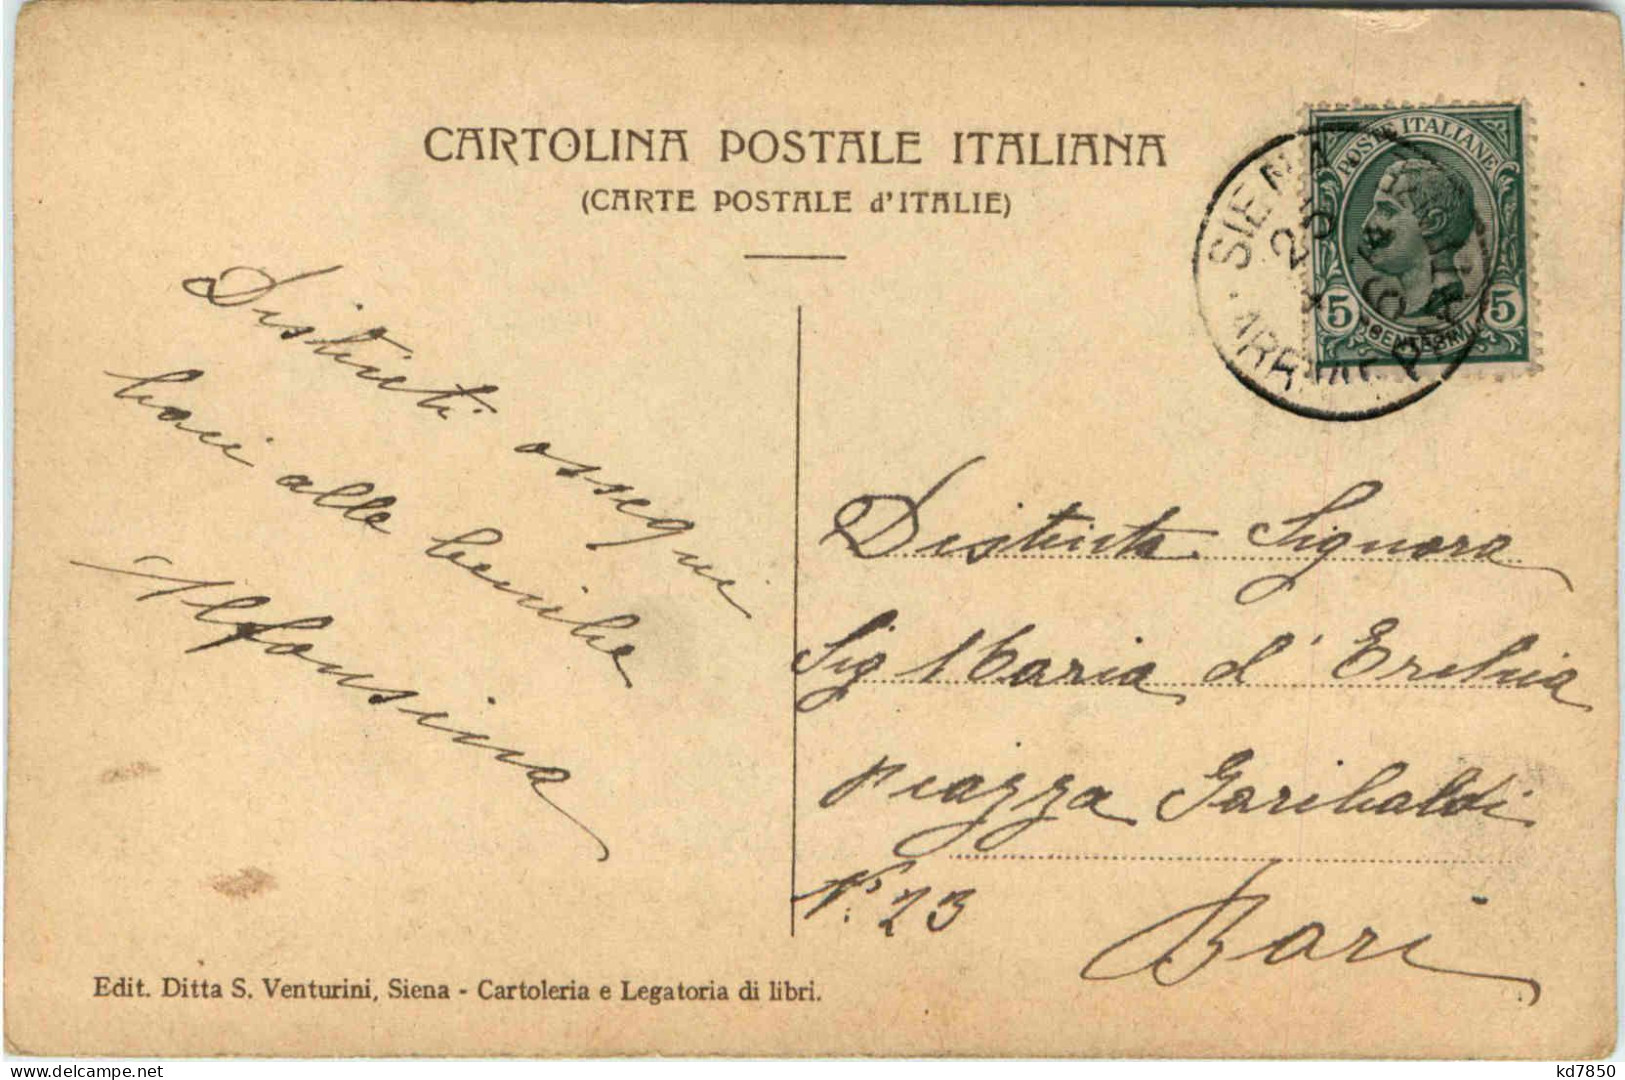 CARTOLINA POSTALE ITALIANA
(CARTE POSTALE d'ITALIE)
POSTE ITALIANE
5 CENTESIMI 5
SIENA
20
Distinti ossequi
baci alle
Alfonsina
Distinta Signora
Sig Maria d'
piazza Garibaldi
N.° 23
Bari
Edit. Ditta S. Venturini, Siena - Cartoleria e Legatoria di libri.
kd7850